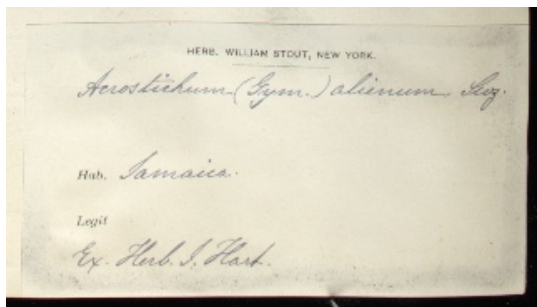 HERB. WILLIAM STOUT, NEW YORK.
Acrostichum (Gym.) alienum, Swz.
Hab. Jamaica.
Legit
Ex. Herb. J. Hart.